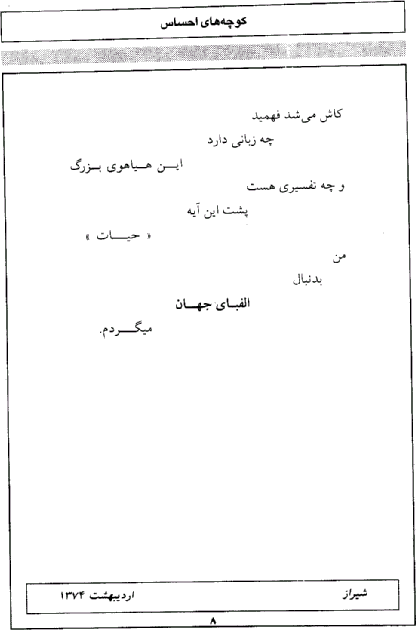 کوچه‌های احساس
کاش می‌شد فهمید
چه زبانی دارد
ایـن هـیاهوی بـزرگ
و چه تفسیری هست
پشت این آیه
« حیـات »
من
بدنبال
الفبـای جهـان
میگـردم.
شیراز اردیبهشت ۱۳۷۴
۸